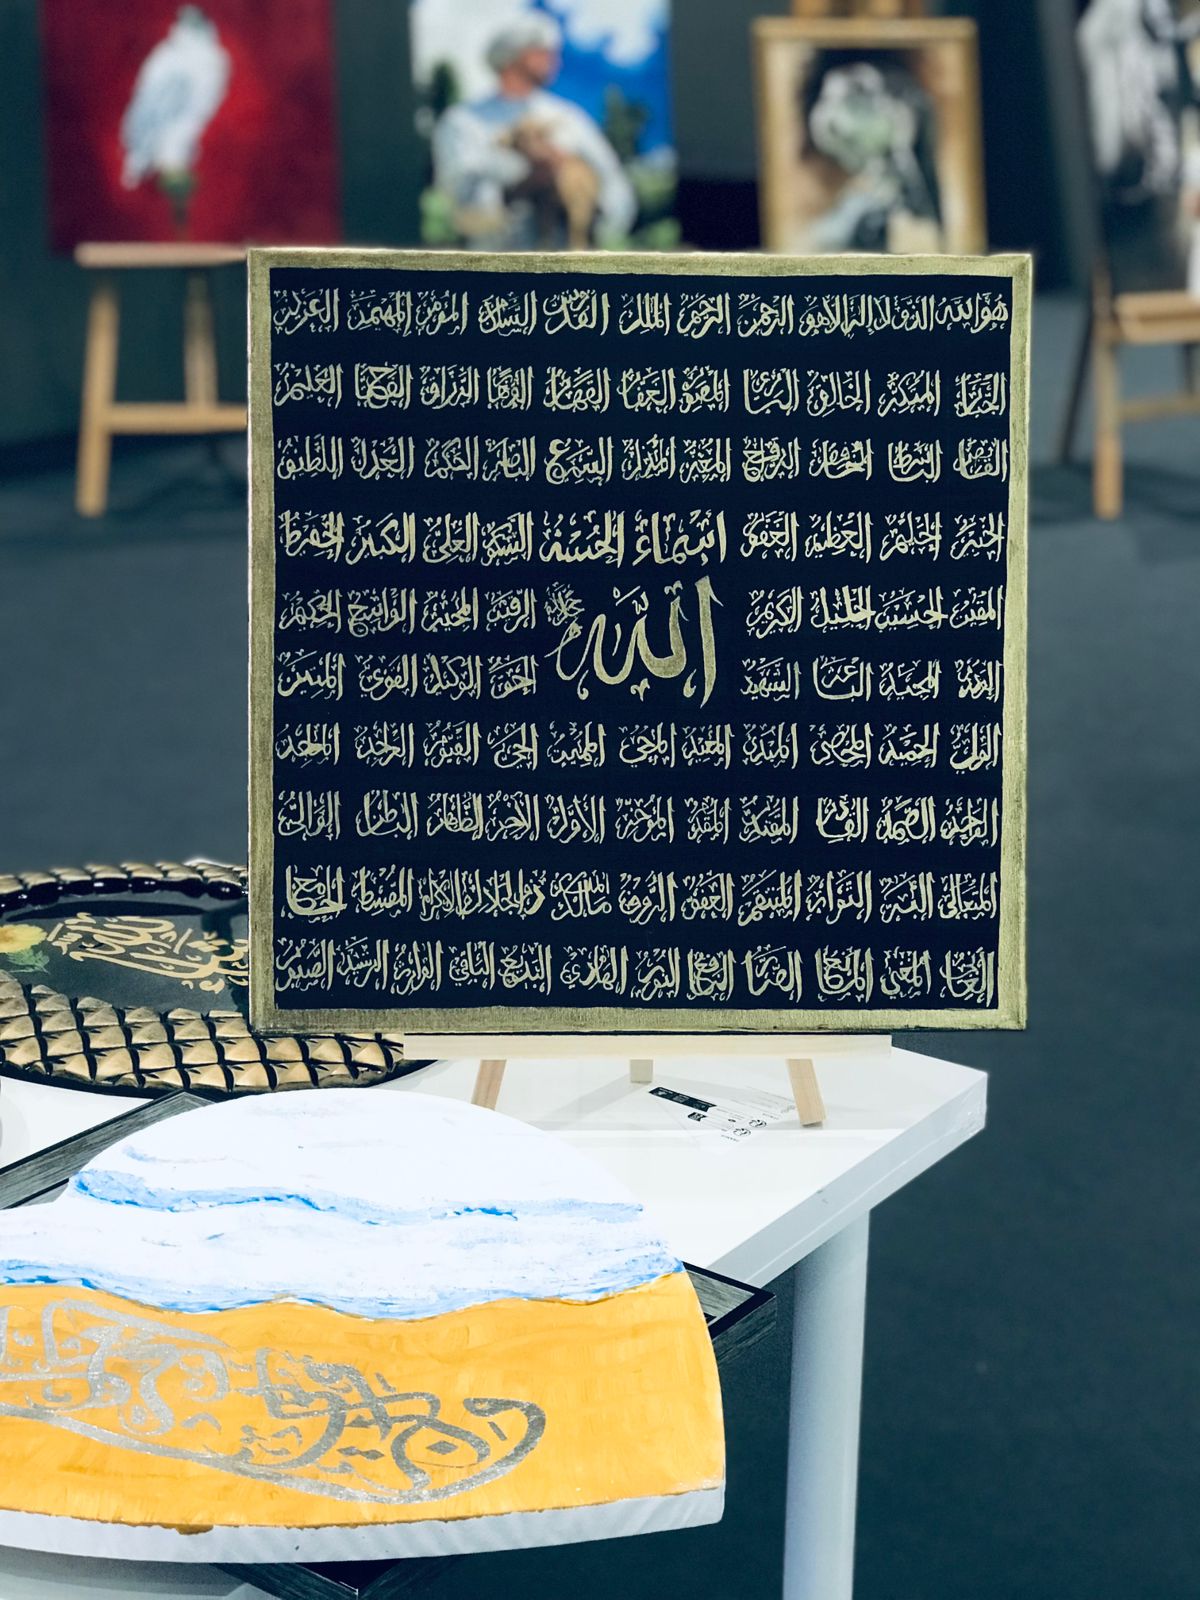 هو الله الذي لا اله الا هو الرحمن الرحيم الملك القدوس السلام المؤمن المهيمن العزيز
الجبار المتكبر الخالق البارئ المصور الغفار القهار الوهاب الرزاق الفتاح العليم
القابض الباسط الخافض الرافع المعز المذل السميع البصير الحكم العدل اللطيف
الخبير الحليم العظيم الغفور اسماء الحسنى الشكور العلي الكبير الحفيظ
المقيت الحسيب الجليل الكريم الله جل جلاله الرقيب المجيب الواسع الحكيم
الودود المجيد الباعث الشهيد الحق الوكيل القوي المتين
الولي الحميد المحصي المبدئ المعيد المحيي المميت الحي القيوم الواجد الماجد
الواحد الصمد القادر المقتدر المقدم المؤخر الأول الآخر الظاهر الباطن الوالي
المتعالي البر التواب المنتقم العفو الرؤوف مالك الملك ذو الجلال والإكرام المقسط الجامع
الغني المغني المانع الضار النافع النور الهادي البديع الباقي الوارث الرشيد الصبور